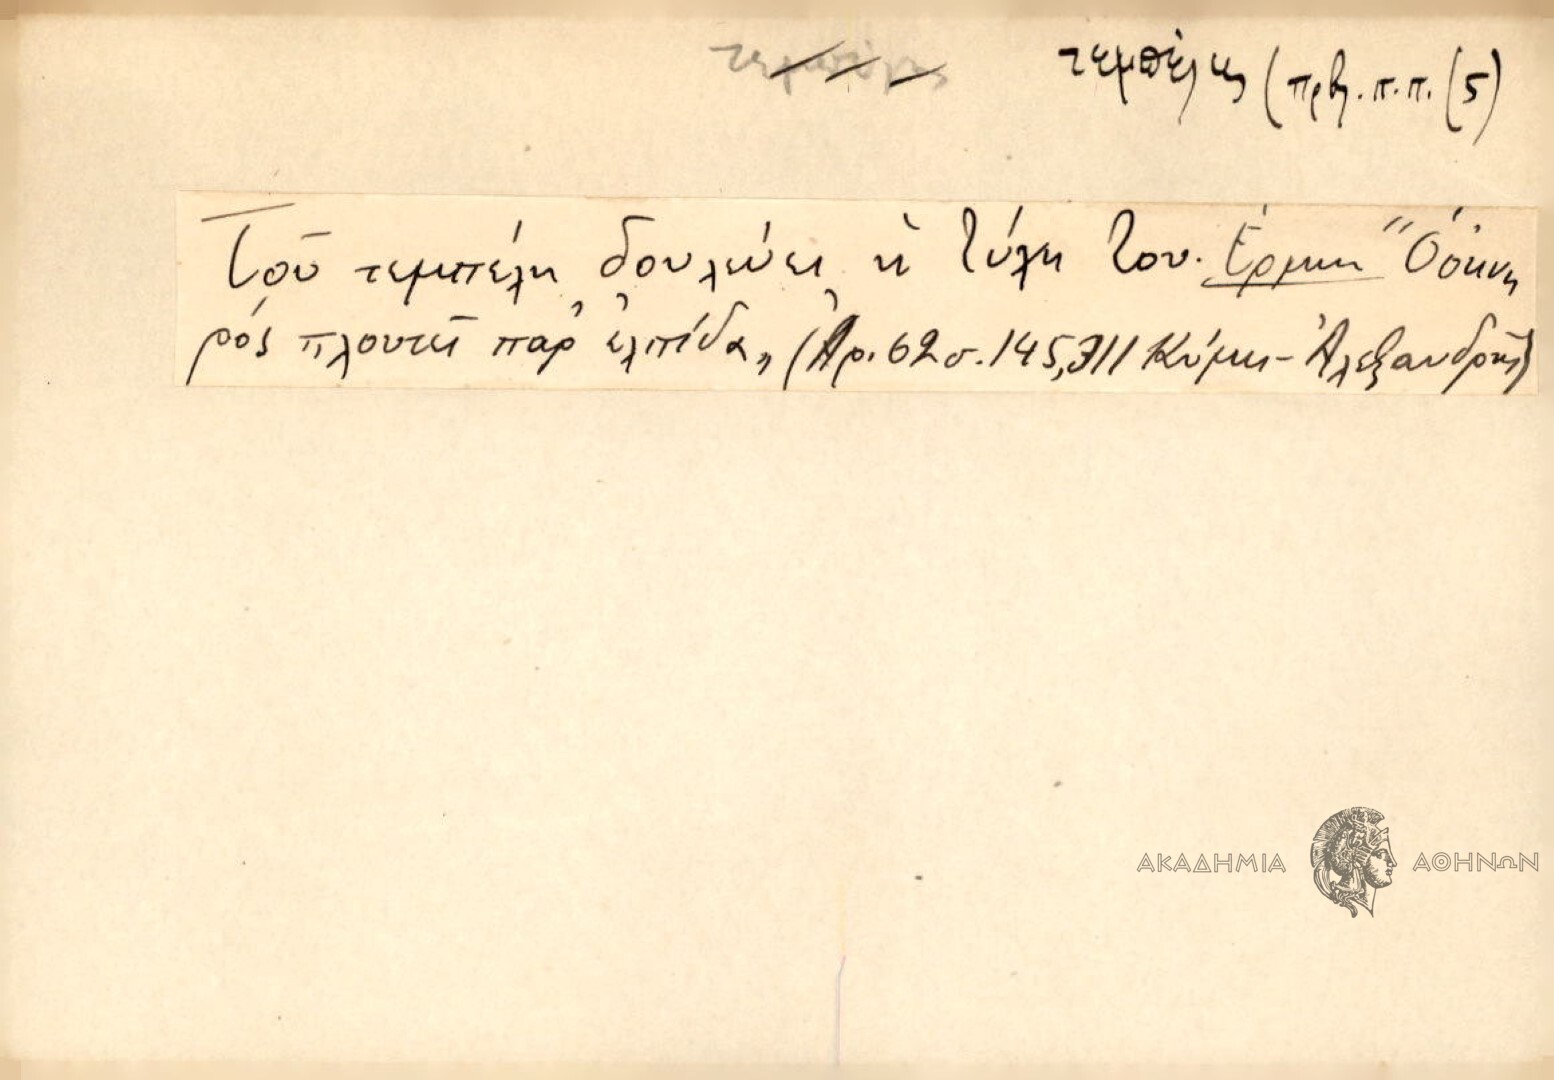 τεμπέλης τεμπέλης (πρβ. π.π. (5)
Τοῦ τεμπέλη δουλεύει ἡ τύχη του. Ἑρμην "Ὁ ὀκνη
ρός πλουτεῖ παρ' ἐλπίδα„ (Ἀρ. 62 σ. 145, 311 Κύμης - Ἀλεξανδρῆς)
ΑΚΑΔΗΜΙΑ ΑΘΗΝΩΝ